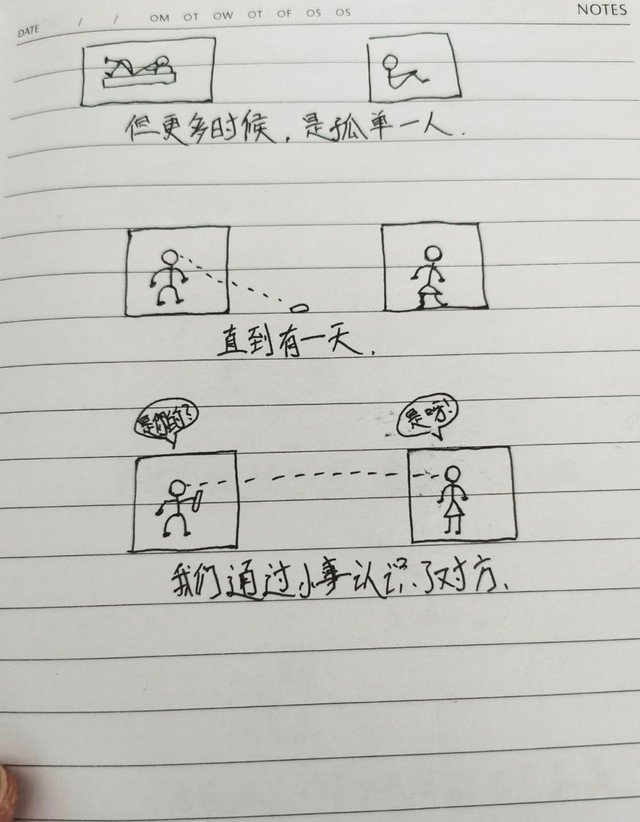 NOTES
DATE / / OM OT OW OT OF OS OS
但更多时候，是孤单一人.
直到有一天，
是你的?
是呀!
我们通过小事认识了对方、